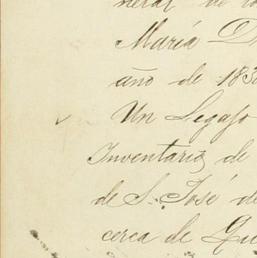 de
María D
año de 183
Un Legajo
Inventario, de
de S. José de
cerca de Gu